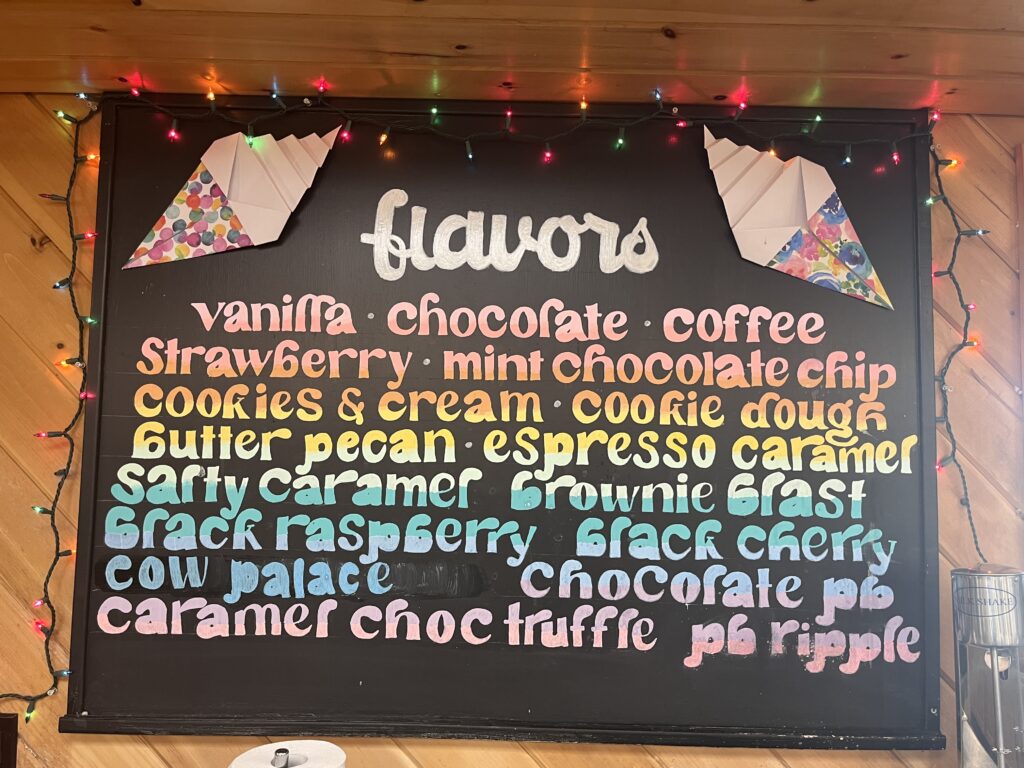 flavors
vanilla · chocolate · coffee
Strawberry · mint chocolate chip
cookies & cream · cookie dough
butter pecan · espresso caramel
salty caramel brownie blast
black raspberry black cherry
cow palace chocolate pb
caramel choc truffle pb ripple